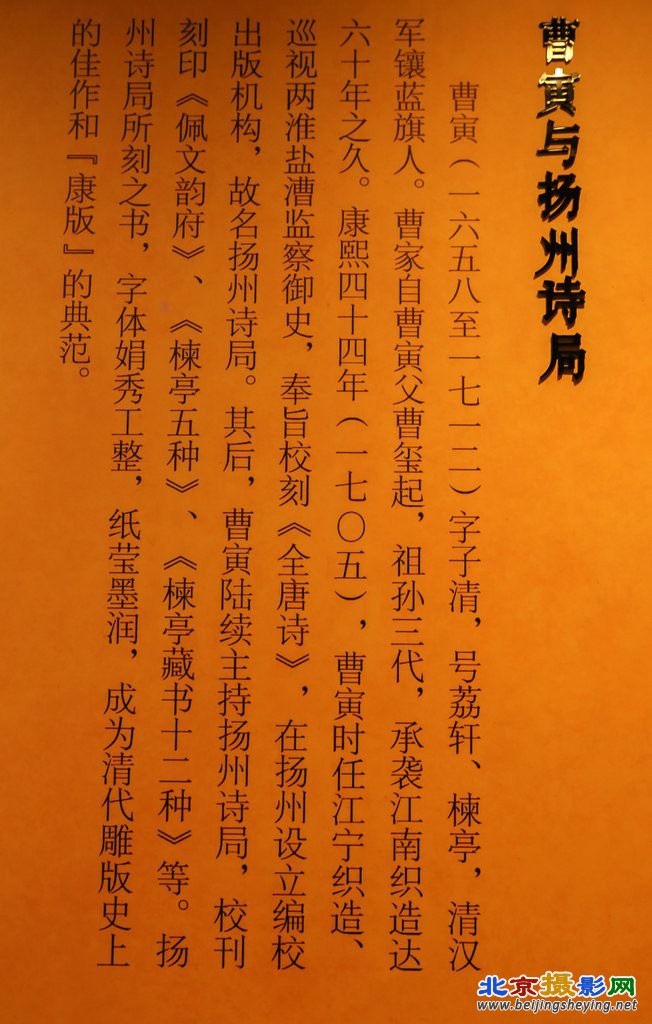 曹寅与扬州诗局
曹寅（一六五八至一七一二）字子清，号荔轩、楝亭，清汉
军镶蓝旗人。曹家自曹寅父曹玺起，祖孙三代，承袭江南织造达
六十年之久。康熙四十四年（一七〇五），曹寅时任江宁织造、
巡视两淮盐漕监察御史，奉旨校刻《全唐诗》，在扬州设立编校
出版机构，故名扬州诗局。其后，曹寅陆续主持扬州诗局，校刊
刻印《佩文韵府》、《楝亭五种》、《楝亭藏书十二种》等。扬
州诗局所刻之书，字体娟秀工整，纸莹墨润，成为清代雕版史上
的佳作和『康版』的典范。
北京摄影网
www.beijingsheying.net